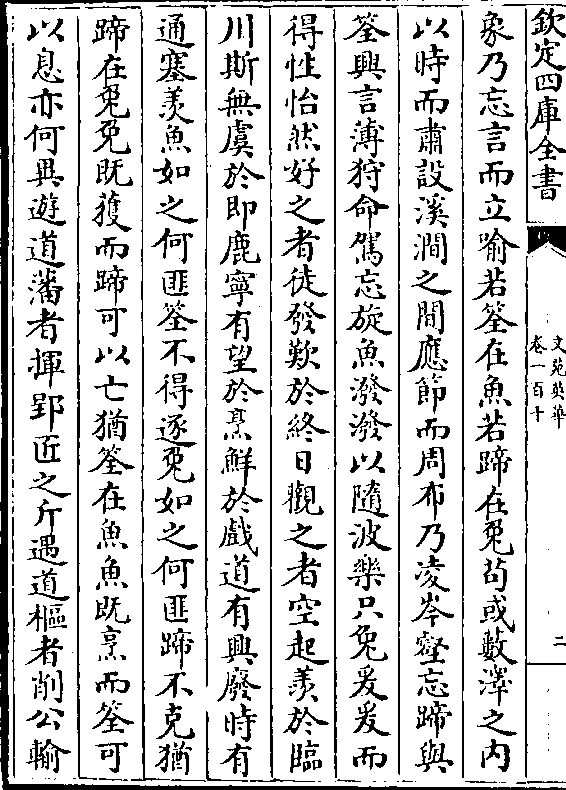 欽定四庫全書
文苑英華
卷一百十
二
象乃忘言而立喻若筌在魚若蹄在兔苟或藪澤之内
以時而肅設溪澗之間應節而周布乃凌岑壑忘蹄與
筌興言薄狩命駕忘旋魚潑潑以隨波樂只兔爰爰而
得性怡然好之者徒發歎於終日觀之者空起羨於臨
川斯無虞於即鹿寧有望於烹鮮於戲道有興廢時有
通塞羨魚如之何匪筌不得逐兔如之何匪蹄不克猶
蹄在兔兔既獲而蹄可以亡猶筌在魚魚既烹而筌可
以息亦何異遊道藩者揮郢匠之斤遇道樞者削公輸